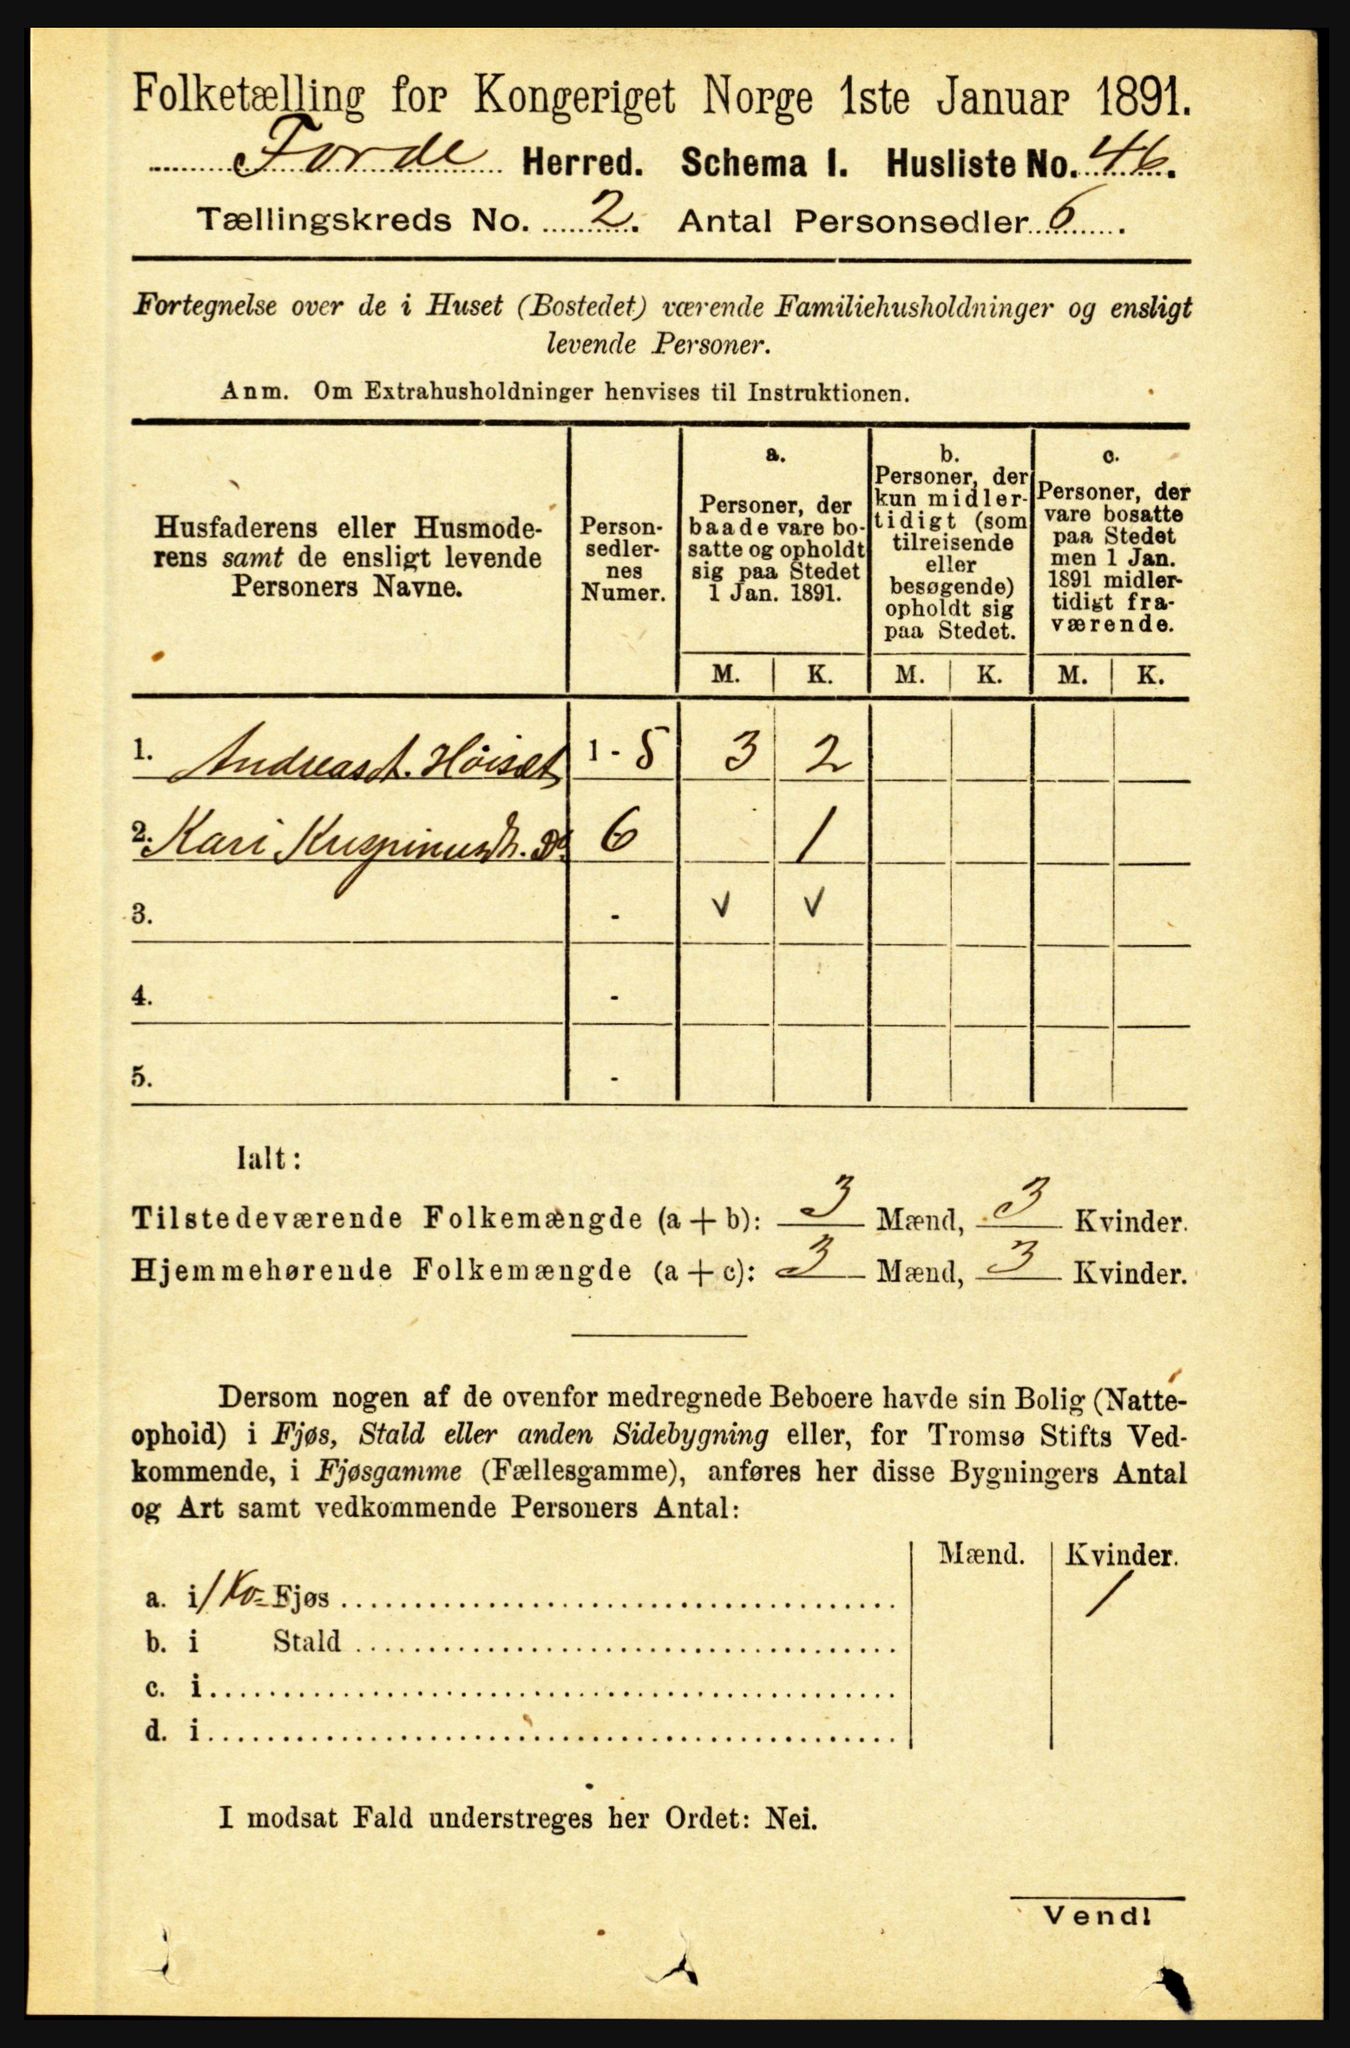 Folketælling for Kongeriget Norge 1ste Januar 1891.
Førde Herred. Schema I. Husliste No. 46.
Tællingskreds No. 2. Antal Personsedler 6.
Fortegnelse over de i Huset (Bostedet) værende Familiehusholdninger og ensligt
levende Personer.
Anm. Om Extrahusholdninger henvises til Instruktionen.
Husfaderens eller Husmode-
rens samt de ensligt levende
Personers Navne.
Person-
sedler-
nes
Numer.
a.
Personer, der
baade vare bo-
satte og opholdt
sig paa Stedet
1 Jan. 1891.
b.
Personer, der
kun midler-
tidigt (som
tilreisende
eller
besøgende)
opholdt sig
paa Stedet.
c.
Personer, der
vare bosatte
paa Stedet
men 1 Jan.
1891 midler-
tidigt fra-
værende.
M. K. M. K. M. K.
1. Andreas A. Höiset 1 - 5 3 2
2. Kari Krispinusdt. Do 6 1
3. - v v
4. -
5. -
Ialt:
Tilstedeværende Folkemængde (a + b): 3 Mænd, 3 Kvinder.
Hjemmehørende Folkemængde (a + c): 3 Mænd, 3 Kvinder.
Dersom nogen af de ovenfor medregnede Beboere havde sin Bolig (Natte-
ophold) i Fjøs, Stald eller anden Sidebygning eller, for Tromsø Stifts Ved-
kommende, i Fjøsgamme (Fællesgamme), anføres her disse Bygningers Antal
og Art samt vedkommende Personers Antal:
Mænd. Kvinder.
a. i 1 Ko- Fjøs 1
b. i Stald
c. i
d. i
I modsat Fald understreges her Ordet: Nei.
Vend!